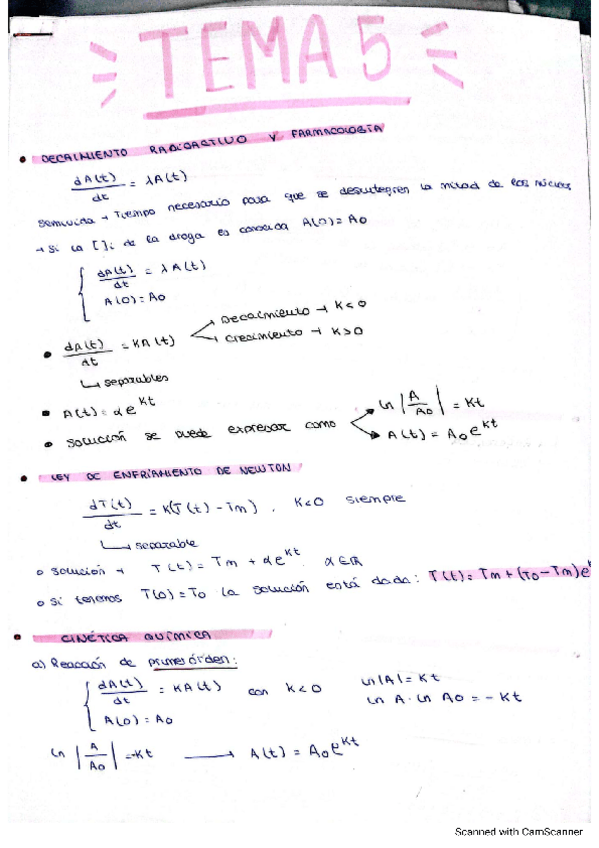 TEMA 5
• DECAIMIENTO RADIOACTIVO Y FARMACOLOGÍA
dA(t)/dt = λA(t)
Semivida → Tiempo necesario para que se desintegren la mitad de los núcleos
→ Si la [ ]i de la droga es conocida A(0) = A0
{ dA(t)/dt = λA(t)
A(0) = A0
Decaimiento → K<0
• dA(t)/dt = KA(t)
Crecimiento → K>0
↳ separables
• A(t) = αe^Kt
ln |A/A0| = Kt
• Solución se puede expresar como
A(t) = A0e^Kt
• LEY DE ENFRIAMIENTO DE NEWTON
dT(t)/dt = K(T(t) - Tm) . K<0 siempre
↳ separable
o Solución → T(t) = Tm + αe^Kt α∈ℝ
o Si tenemos T(0) = T0 la solución está dada: T(t) = Tm + (T0 - Tm)e
• CINÉTICA QUÍMICA
a) Reacción de primer órden:
{ dA(t)/dt = KA(t) con K<0 ln|A| = Kt
A(0) = A0 ln A - ln A0 = -Kt
ln |A/A0| = -Kt → A(t) = A0e^Kt
Scanned with CamScanner